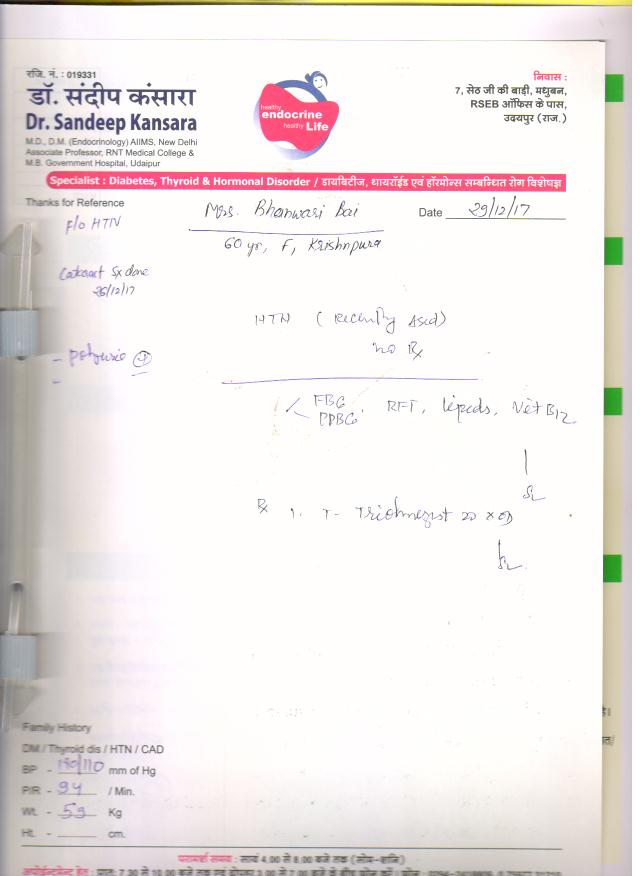 रजि. नं. : 019331
डॉ. संदीप कंसारा
Dr. Sandeep Kansara
M.D., D.M. (Endocrinology) AIIMS, New Delhi
Associate Professor, RNT Medical College &
M.B. Government Hospital, Udaipur
healthy
endocrine
healthy Life
निवास :
7, सेठ जी की बाड़ी, मधुबन,
RSEB ऑफिस के पास,
उदयपुर (राज.)
Specialist : Diabetes, Thyroid & Hormonal Disorder / डायबिटीज, थायरॉईड एवं हॉरमोन्स सम्बन्धित रोग विशेषज्ञ
Thanks for Reference
Mrs. Bhanwari Bai
Date 29/12/17
F/o HTN
60 yr, F, Krishnpura
Cataract Sx done
26/12/17
HTN (recently
no Rx
FBG
PPBG
RFT, Lipids, Vit B12
Rx 1. T-
Family History
DM / Thyroid dis / HTN / CAD
BP - 190/110 mm of Hg
P/R - 94 / Min.
Wt. - 59 Kg
Ht. - cm.
परामर्श समय : सायं 4.00 से 8.00 बजे तक (सोम-शनि)